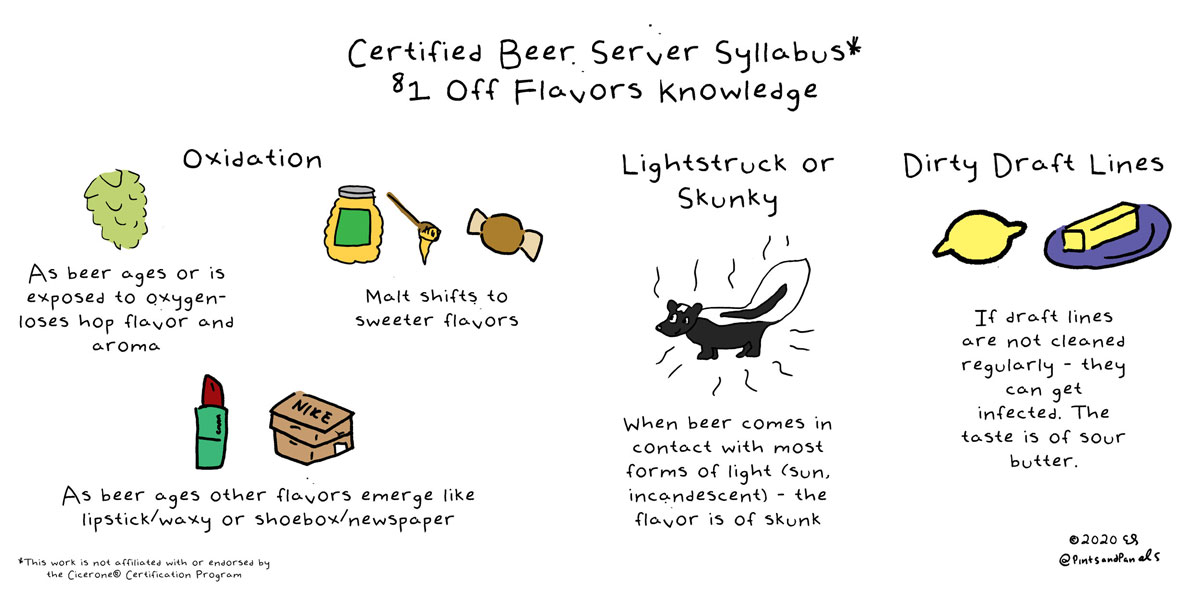 Certified Beer Server Syllabus*
81 Off Flavors Knowledge
Oxidation
As beer ages or is
exposed to oxygen-
loses hop flavor and
aroma
Malt shifts to
sweeter flavors
NIKE
As beer ages other flavors emerge like
lipstick/waxy or shoebox/newspaper
Lightstruck or
Skunky
When beer comes in
contact with most
forms of light (sun,
incandescent) - the
flavor is of skunk
Dirty Draft Lines
If draft lines
are not cleaned
regularly - they
can get
infected. The
taste is of sour
butter.
*This work is not affiliated with or endorsed by
the Cicerone® Certification Program
©2020
@PintsandPanels